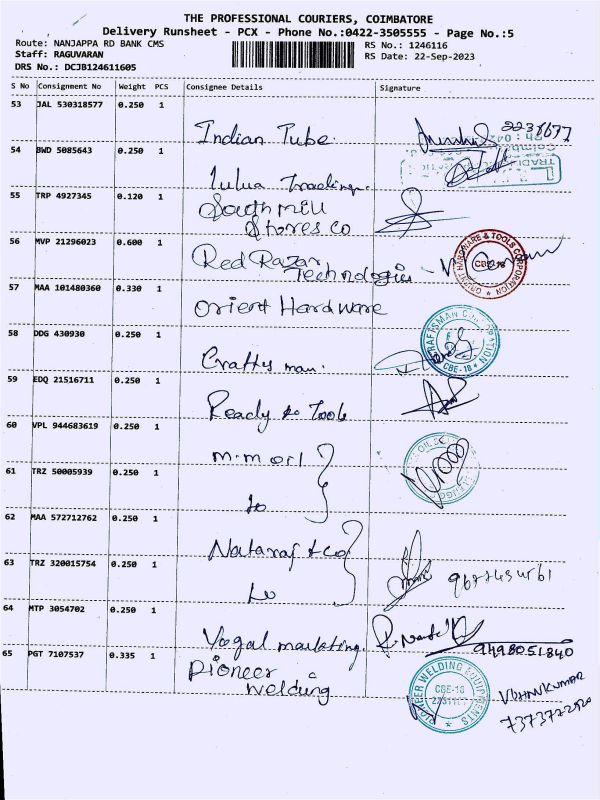 THE PROFESSIONAL COURIERS, COIMBATORE
Delivery Runsheet - PCX - Phone No.:0422-3505555 - Page No.:5
Route: NANJAPPA RD BANK CMS
RS No.: 1246116
Staff: RAGUVARAN
RS Date: 22-Sep-2023
DRS No.: DCJB124611605
S No Consignment No Weight PCS Consignee Details Signature
53 JAL 530318577 0.250 1
Indian Tube
54 BWD 5085643 0.250 1
Lulua Trading.
55 TRP 4927345 0.120 1
South Mill
Stores Co
56 MVP 21296023 0.600 1
Red Razar
Technologies
ORIENT HARDWARE & TOOLS CORPORATION
57 MAA 101480360 0.330 1
Orient Hardware
58 DDG 430930 0.250 1
Crafts man.
CBE-18
59 EDQ 21516711 0.250 1
Ready to Tools
60 VPL 944683619 0.250 1
M.M oil
61 TRZ 50005939 0.250 1
to
62 MAA 572712762 0.250 1
Nataraj & Co
63 TRZ 320015754 0.250 1
to
64 MTP 3054702 0.250 1
Yogal marketing.
9498051840
65 PGT 7107537 0.335 1
Pioneer
Welding
PIONEER WELDING EQUIPMENTS
CBE-18